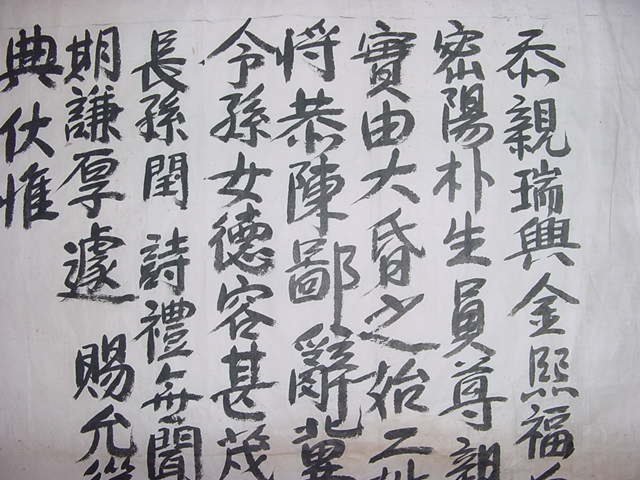 忝親瑞興金熙福
密陽朴生員尊親
實由大昏之始二
将恭陳鄙辭冀
令孫女德容甚茂
長孫閏詩禮無聞
期謙厚遽賜允從
典伏惟